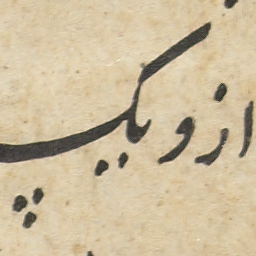 ازو یک